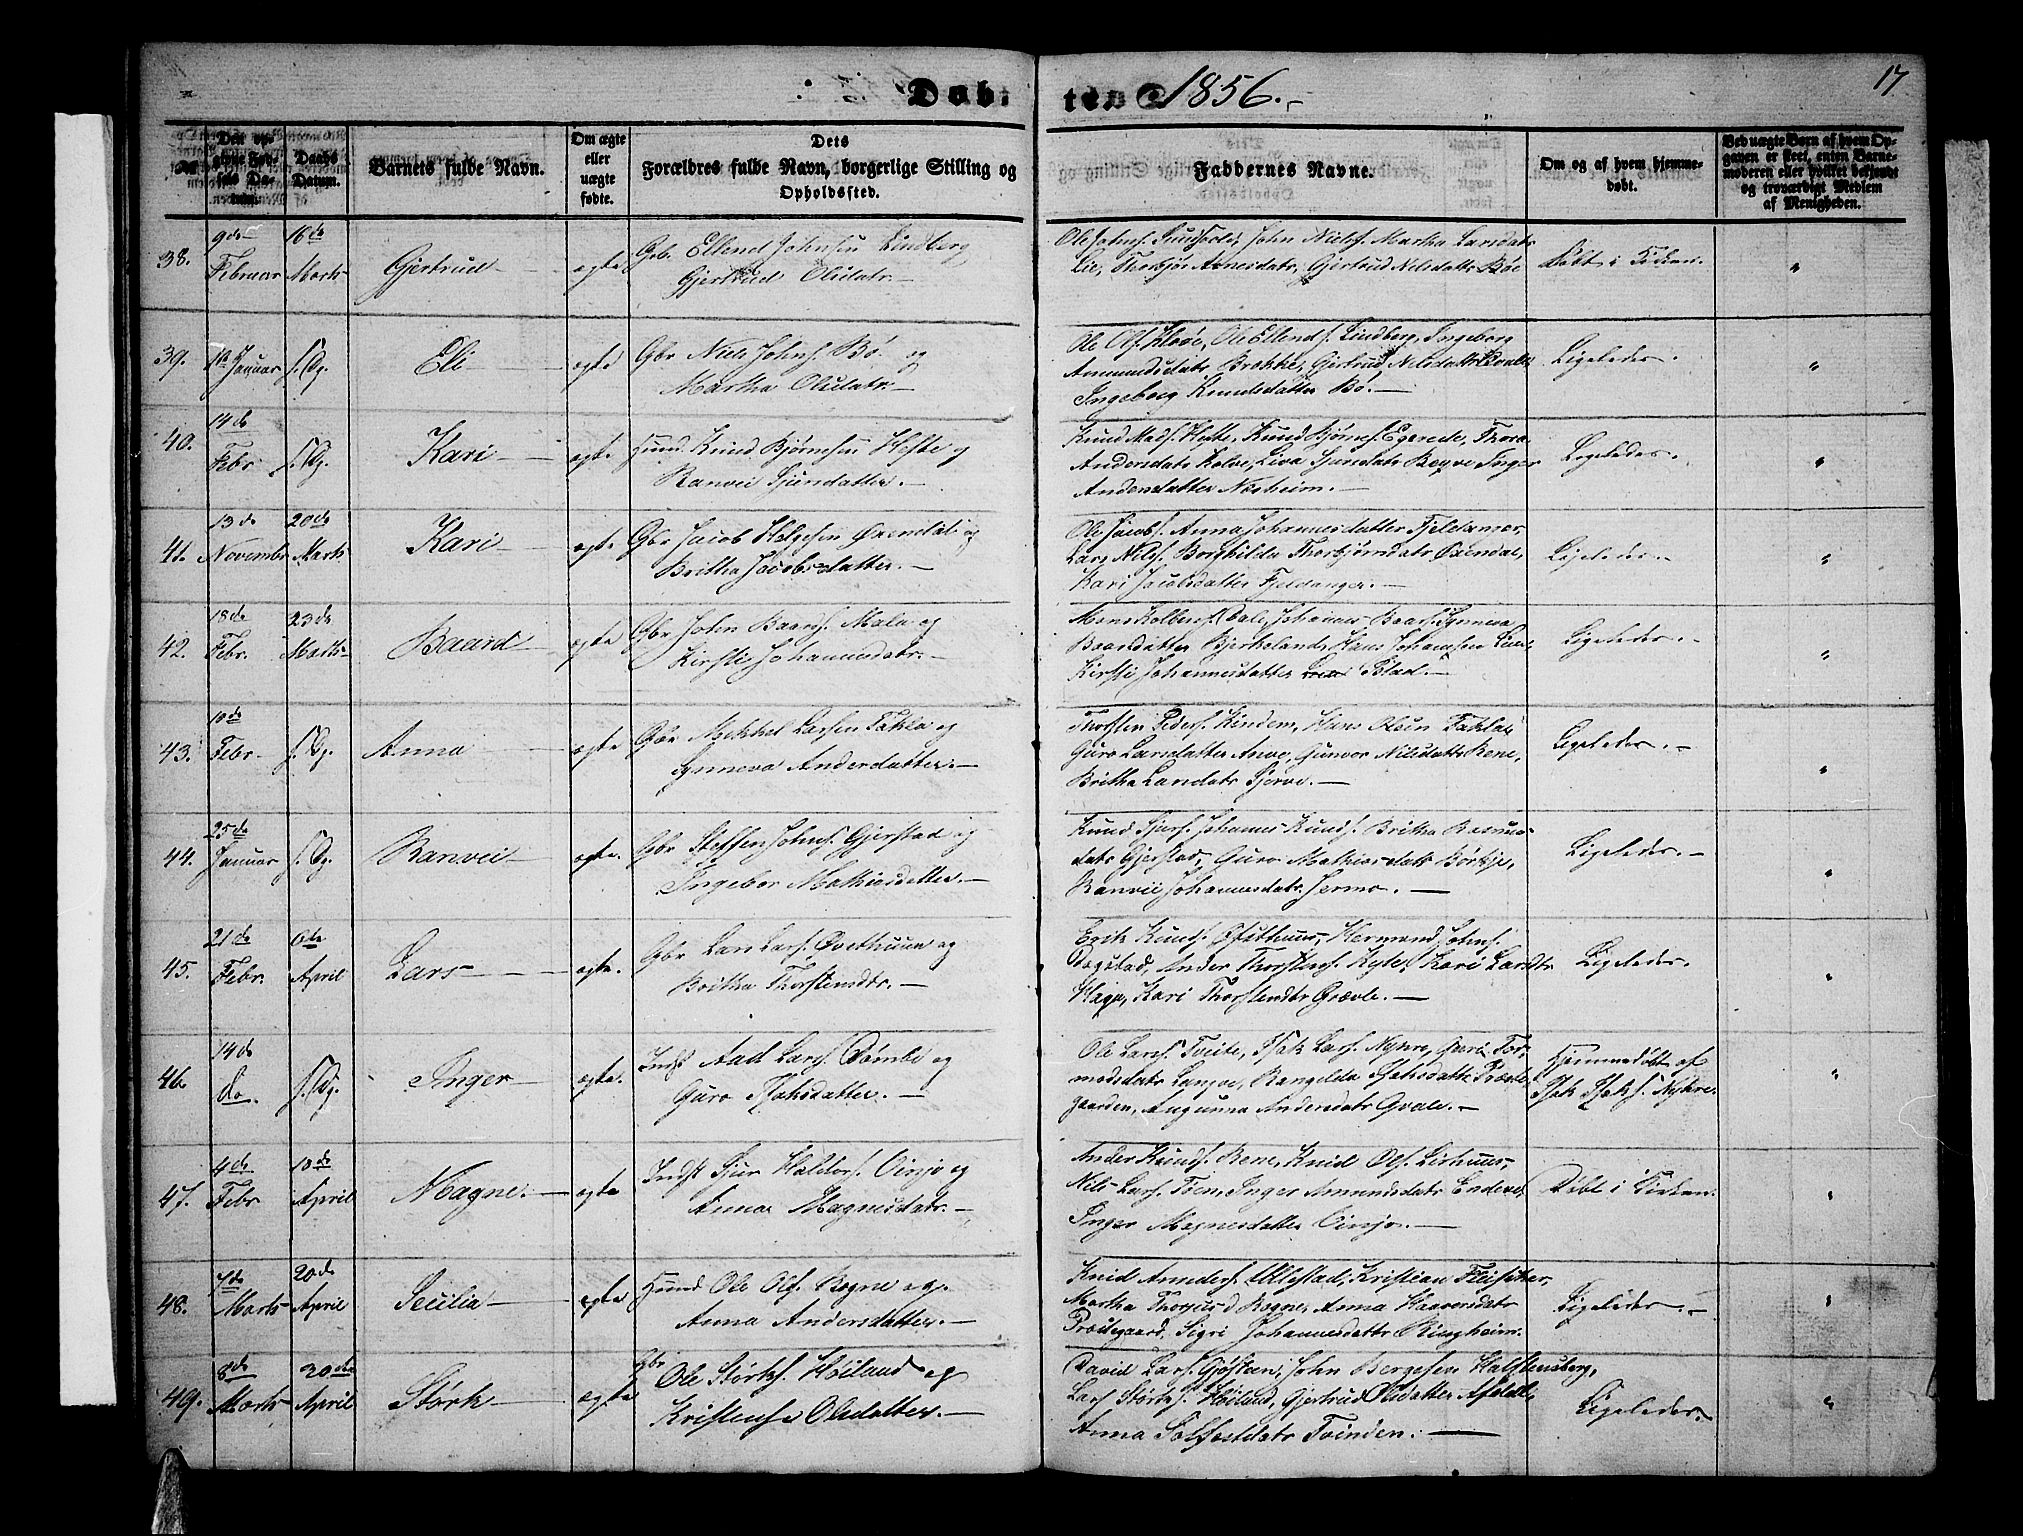 Døbte 1856.
17
No.
Den opgivne Fødsels Datum.
Daabs Datum.
Barnets fulde Navn.
Om ægte eller uægte fødte.
Dets Forældres fulde Navn, borgerlige Stilling og Opholdssted.
Faddernes Navne.
Om og af hvem hjemmedøbt.
Ved uægte Børn af hvem Opgaven er skeet, enten Barnemoderen eller hvilket bekjendt og troværdigt Medlem af Menigheden.
38. 9de Februar 16de Marts Gjertrud ægte Gbr. Ellend Johnsen Lindberg
Gjertrud Olsdatr.
John Nielss. Martha Larsdatr
Lie, Thorbjør Arnesdatr, Gjertrud Nilsdattr Bøe
Døbt i Kirken. "
39. Januar s. Dg. Eli ægte Gbr Niels Johns. Bø og
Martha Olsdatr.
Ole Ols. Ole Ellends. Lindberg, Ingeborg
Amundsdatr Brække, Gjertrud Nilsdattr
Ingeborg Knudsdatter Bø.
Ligeledes. "
40. 14de Febr. s. Dg. Kari ægte Huusmd. Knud Bjørnsen Hefte og
Ranvei Sjursdatter.
Knud Mads. Hefte, Knud Bjørns. Thora
Andersdatr Liva Sjursdatr Inger
Andersdatter Næsheim.
Ligeledes. "
41. 13de November 20de Marts Kari ægte Gbr Jacob Helgesen Øxendal og
Britha Jacobsdatter.
Ole Jacobs. Anna Johannesdatter Fjeldanger,
Lars Nils. Borghilda Thorbjørnsdatr Øxendal,
Kari Jacobsdatter Fjeldanger.
Ligeledes. "
42. 18de Febr. 23de Marts Baard ægte Gbr John Baards. Mala og
Kirsti Johannesdatr.
Mons Kolbens. Dale, Johannes Baards. Synneva
Baardsdatter Bjørkeland, Hans Johannsen
Kirsti Johannesdatter Blad.
Ligeledes. "
43. 10de Febr. s. Dg. Anna ægte Gbr Mikkel Larsen Takla og
Synneva Andersdatter.
Thorsten Peders. Kindem, Hans Olsen Takla,
Guro Larsdatter Gunvor Nilsdattr Rene,
Britha Larsdatr Gjerve.
Ligeledes. "
44. 25de Januar s. Dg. Ranvei ægte. Gbr Steffen Johns. Gjerstad og
Ingebor Mathiasdatter.
Knud Sjurs. Johannes Knuds. Britha Rasmus-
datr Gjerstad, Guro Mathiasdatr
Ranvei Johannesdatr.
Ligeledes. "
45. 21de Febr. 6de April Lars ægte. Gbr Lars Lars. og
Britha Thorstensdtr.
Erik Knuds. Hermund Johns.
Anders Thorstens. Kari Larsdtr
Kari Thorstensdtr Grævle.
Ligeledes. "
46. 14de do. s. Dg. Inger ægte. Indst Lars. Dømbe og
Guro Isaksdatter.
Ole Lars. Tveite, Isak Lars. Nyhre, Tor-
modsdatr Rangilda Isaksdattr Præste-
gaarden, Angunna Andersdatr Gvale.
Hjemmedøbt af
Isak Isaks. Nyhre. "
47. 4de Febr 10de April Magne ægte Indst Sjur Haldors. Vinjo og
Anna Magnesdatr.
Anders Knuds. Rene, Knud Ols. Lirhuus,
Nils Lars. Inger Amundsdatr Endeve,
Inger Magnesdatter Vinjo.
Døbt i Kirken. "
48. 7de Marts 20de April Secilia ægte Huusmd Ole Ols. Rogne og
Anna Andersdatter.
Knud Anders. Ullestad, Kristian Fleischer,
Martha Rogne, Anna Haaversdatr
Præstegaard, Sigri Johannesdattr Ringheim.
Ligeledes. "
49. 8de Marts 20de April Størk ægte Gbr Ole Størks. Høiland og
Kristense Olsdatter.
David Lars. Gjøsteen, John Bergesen Halstensberg,
Lars Størks. Høiland, Gjertrud Olsdatter
Anna Sølfestdatr Tvinden.
Ligeledes. "